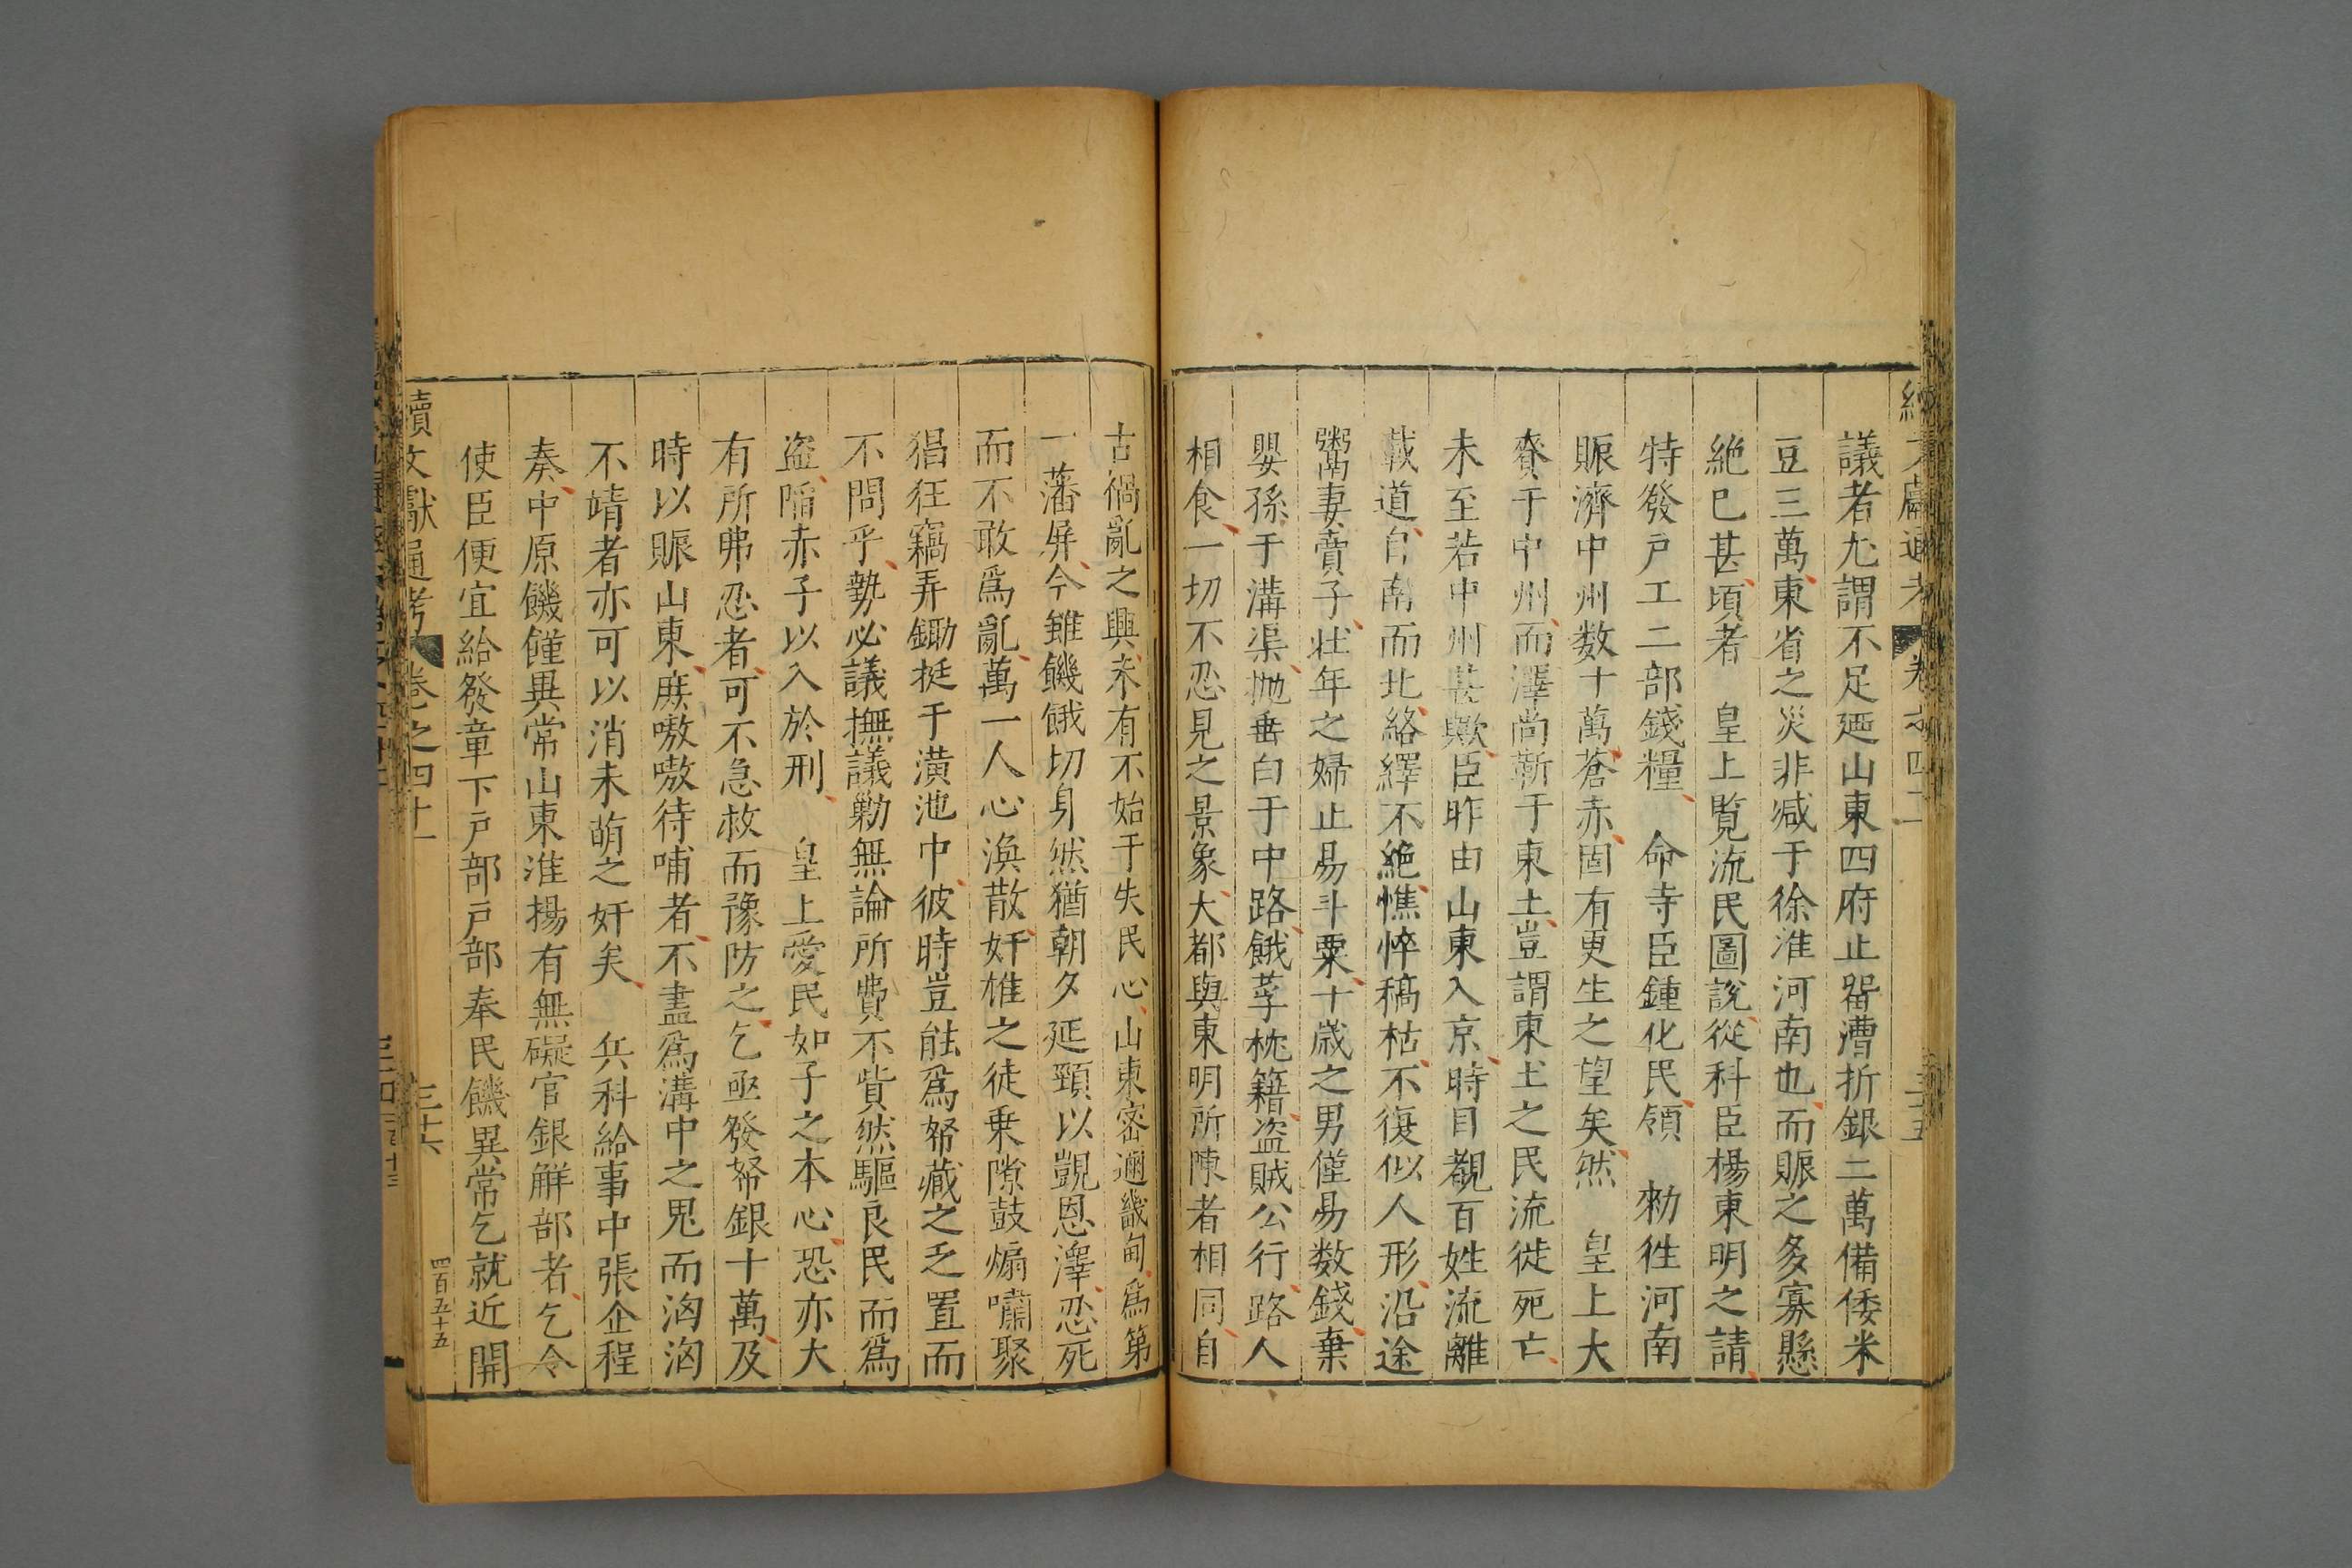 議者尤謂不足廼山東四府止畱漕折銀二萬備倭米
豆三萬東省之災非减于徐淮河南也而賑之多寡懸
絶巳甚頃者　皇上覧流民圖說從科臣楊東明之請
特發戶工二部錢糧　命寺臣鍾化民領　勑徃河南
賑濟中州数十萬蒼赤固有更生之望矣然　皇上大
賚于中州而澤尚靳于東土豈謂東土之民流徙死亡
未至若中州甚歟臣昨由山東入京時目覩百姓流離
載道自南而北絡繹不絶憔悴稿枯不復似人形沿途
鬻妻賣子壮年之婦止易斗粟十歲之男僅易数錢棄
嬰孫于溝渠抛垂白于中路餓莩枕籍盗賊公行路人
相食一切不忍見之景象大都與東明所陳者相同自
古禍亂之興未有不始于失民心山東密邇畿甸爲第
一藩屏今雖饑餓切身然猶朝夕延頸以覬恩澤忍死
而不敢爲亂萬一人心渙散奸雄之徒乗隙鼓煽嘯聚
猖狂竊弄鋤挺于潢池中彼時豈能爲帑藏之乏置而
不問乎勢必議撫議勦無論所費不貲然驅良民而爲
盗陷赤子以入於刑　皇上愛民如子之本心恐亦大
有所弗忍者可不急救而豫防之乞亟發帑銀十萬及
時以賑山東庶嗷嗷待哺者不盡爲溝中之鬼而洶洶
不靖者亦可以消未萌之奸矣　兵科給事中張企程
奏中原饑饉異常山東淮揚有無礙官銀解部者乞令
使臣便宜給發章下戶部戶部奉民饑異常乞就近開
續文獻通考　卷之四十一　三十六　四百五十五